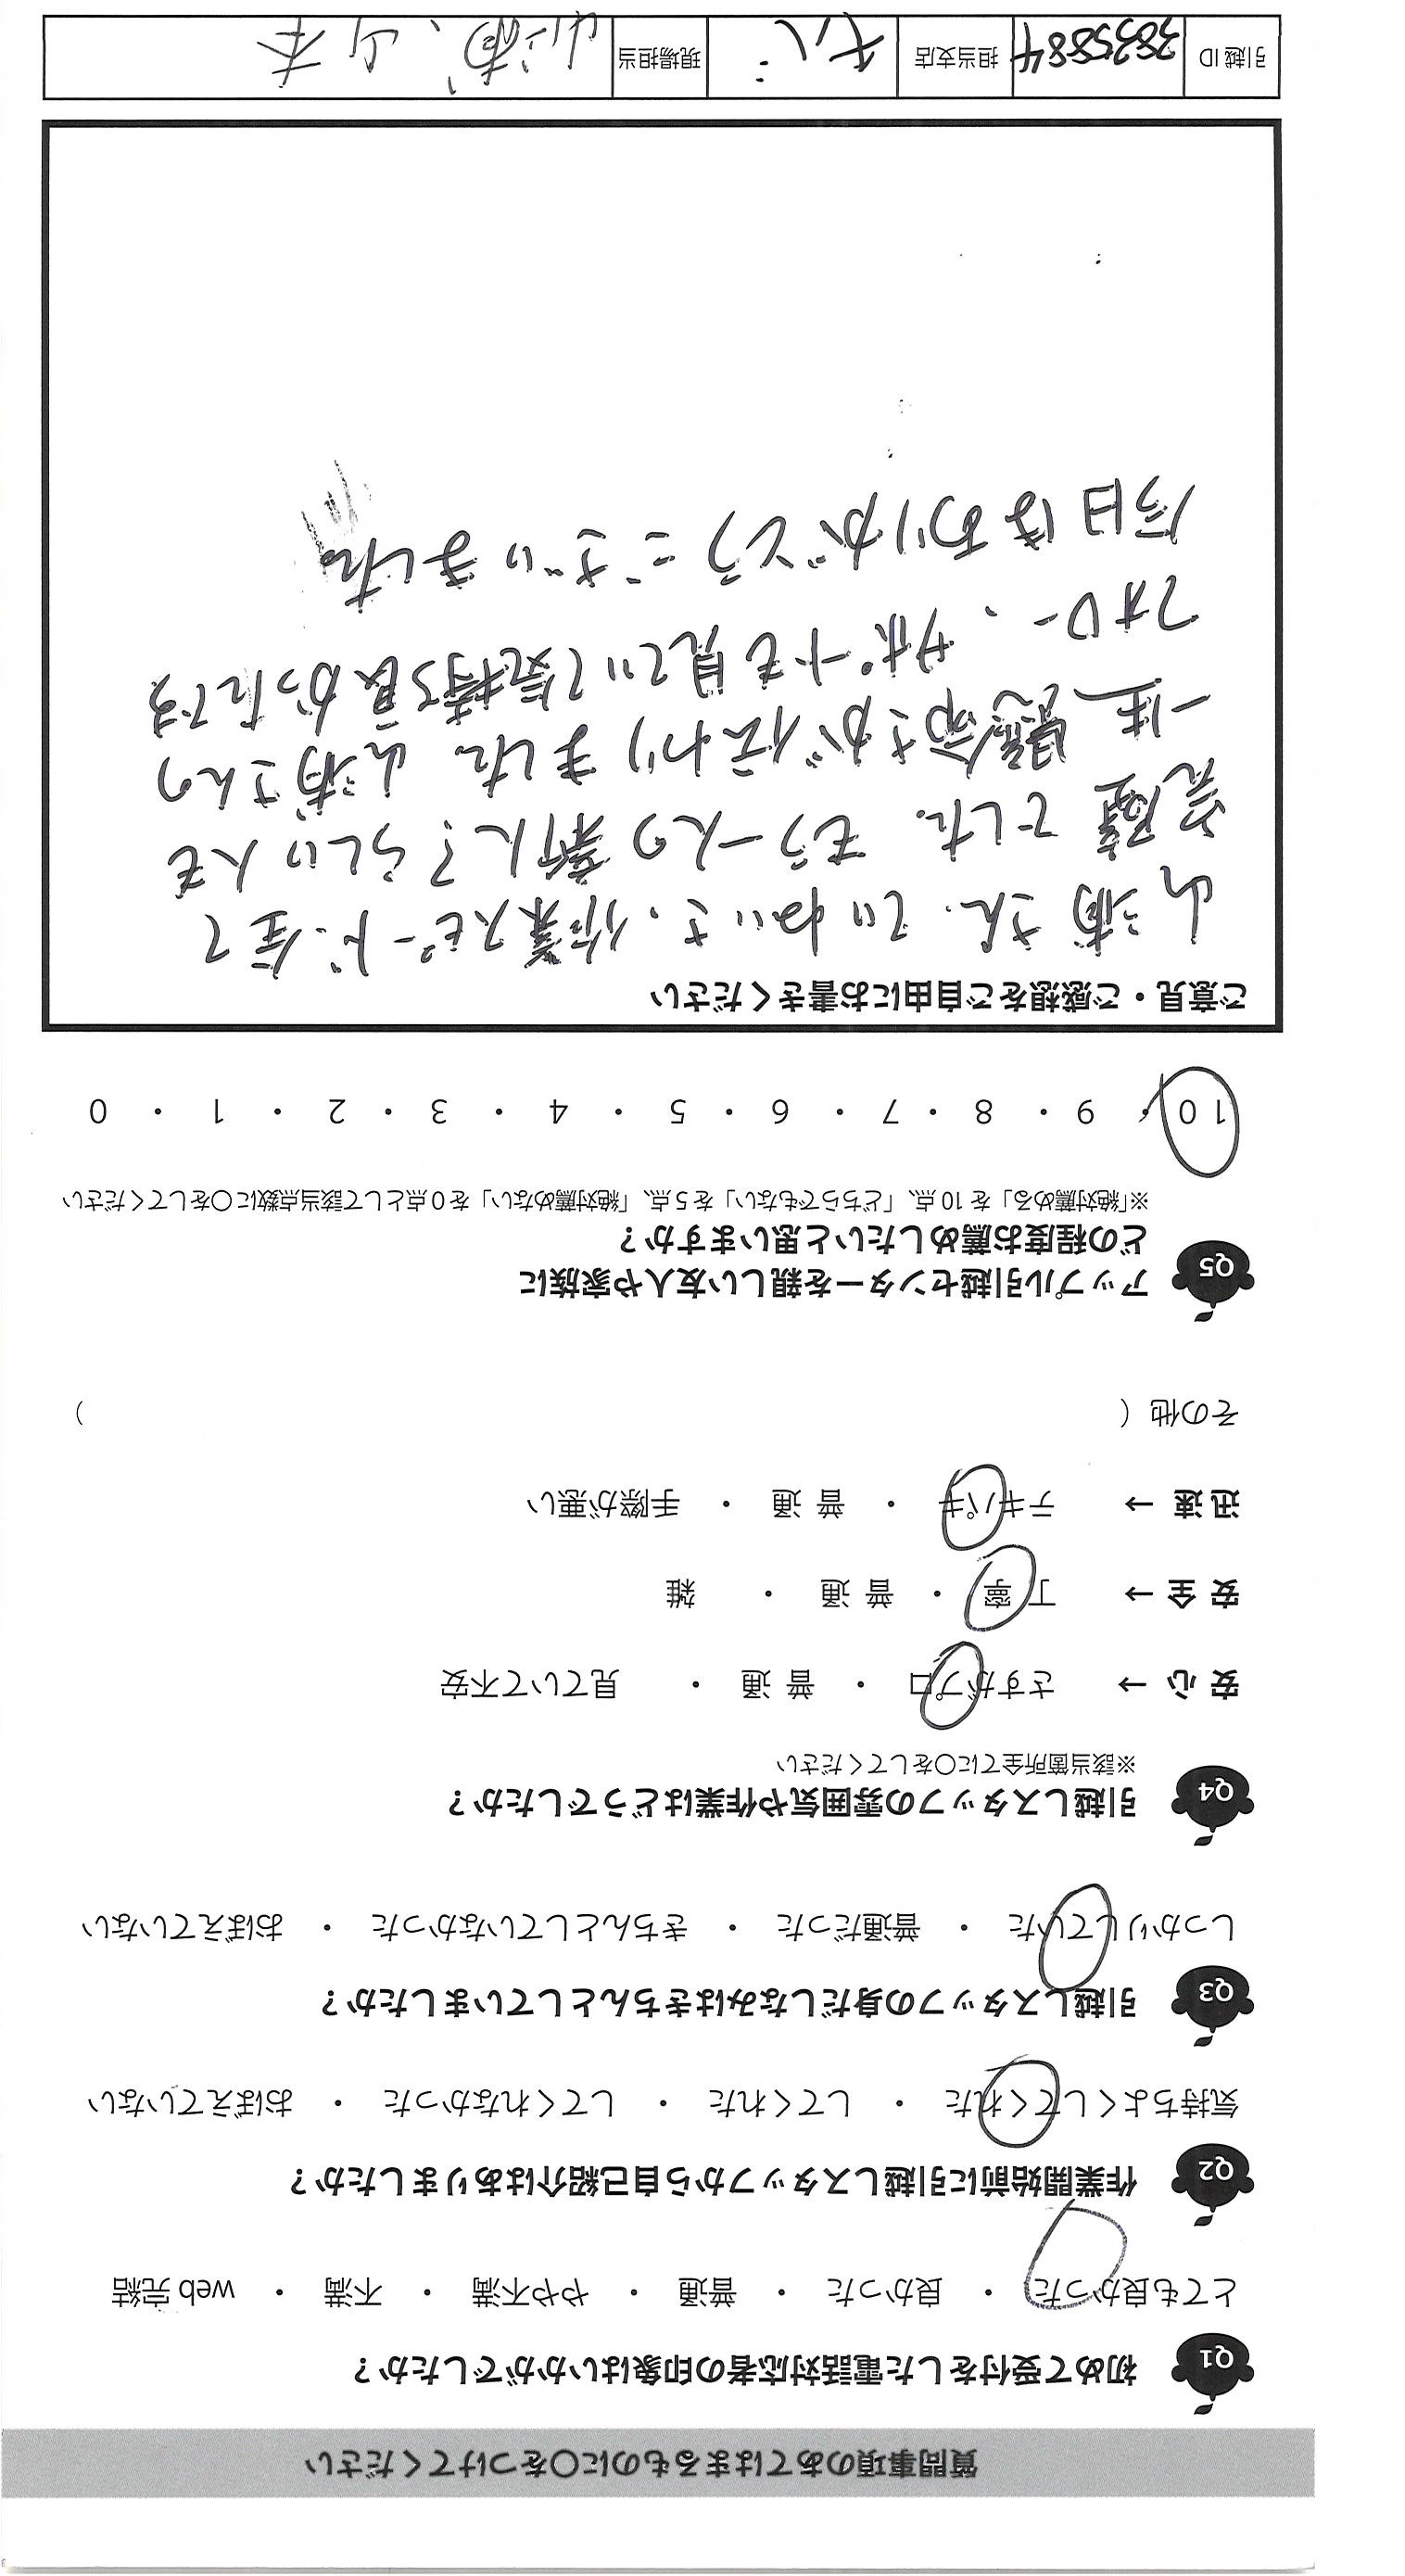 質問事項のあてはまるものに〇をつけてください
Q1 初めて受付をした電話対応者の印象はいかがでしたか？
とても良かった ・ 良かった ・ 普通 ・ やや不満 ・ 不満 ・ web 完結
Q2 作業開始前に引越しスタッフから自己紹介はありましたか？
気持ちよくしてくれた ・ してくれた ・ してくれなかった ・ おぼえていない
Q3 引越しスタッフの身だしなみはきちんとしていましたか？
しっかりしていた ・ 普通だった ・ きちんとしていなかった ・ おぼえていない
Q4 引越しスタッフの雰囲気や作業はどうでしたか？
※該当箇所全てに〇をしてください
安 心 → さすがプロ ・ 普 通 ・ 見ていて不安
安 全 → 丁 寧 ・ 普 通 ・ 雑
迅 速 → テキパキ ・ 普 通 ・ 手際が悪い
その他（ ）
Q5 アップル引越センターを親しい友人や家族に
どの程度お薦めしたいと思いますか？
※「絶対薦める」を 10 点、「どちらでもない」を 5 点、「絶対薦めない」を 0 点として該当点数に〇をしてください
10 ・ 9 ・ 8 ・ 7 ・ 6 ・ 5 ・ 4 ・ 3 ・ 2 ・ 1 ・ 0
ご意見・ご感想をご自由にお書きください
山浦さん、ていねいさ、作業スピード、全て
完璧でした。もう一人の新人？らしい人も
一生懸命さが伝わりました。山浦さんの
フォロー、サポートも見ていて気持ち良かったです
今日はありがとうございました。
引越 ID 3835884 担当支店 現場担当 山浦、山本